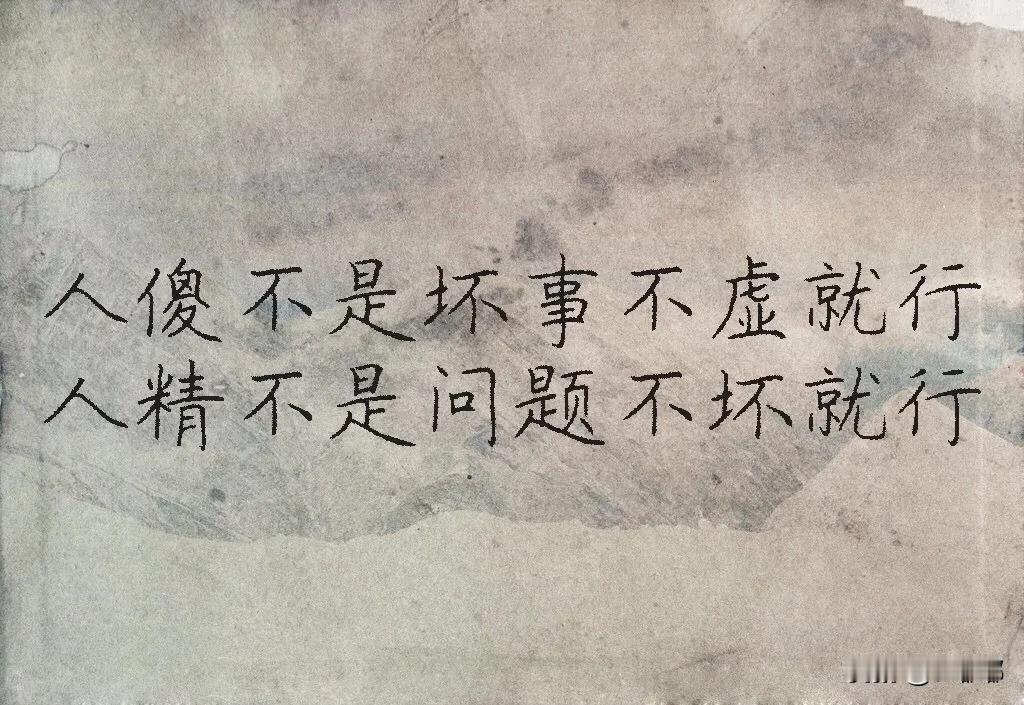 人傻不是坏事不虚就行
人精不是问题不坏就行